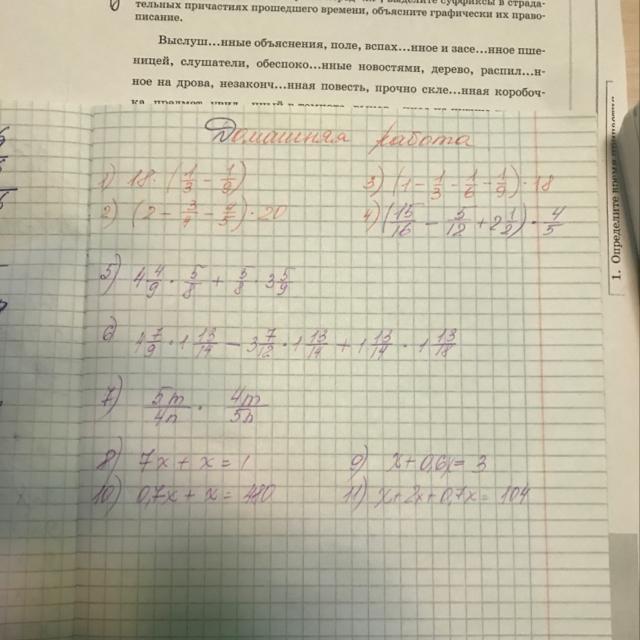 тельных причастиях прошедшего времени, объясните графически их право-
писание.
Выслуш...нные объяснения, поле, вспах...нное и засе...нное пше-
ницей, слушатели, обеспоко...нные новостями, дерево, распил...н-
ное на дрова, незаконч...нная повесть, прочно скле...нная коробоч-
Домашняя работа
1) 18 · (1/3 - 1/9)
3) (1 - 1/3 - 1/6 - 1/9) · 18
2) (2 - 3/4 - 4/5) · 20
4) (15/16 - 5/12 + 2 1/2) · 4/5
5) 4 4/9 · 5/8 + 5/8 · 3 5/9
6) 4 7/9 · 1 13/14 - 3 7/12 · 1 13/14 + 1 13/14 · 1 13/18
7) 5m/4n · 4m/5n
8) 7x + x = 1
9) x + 0,6x = 3
10) 0,7x + x = 480
11) x + 2x + 0,7x = 104
1. Определите